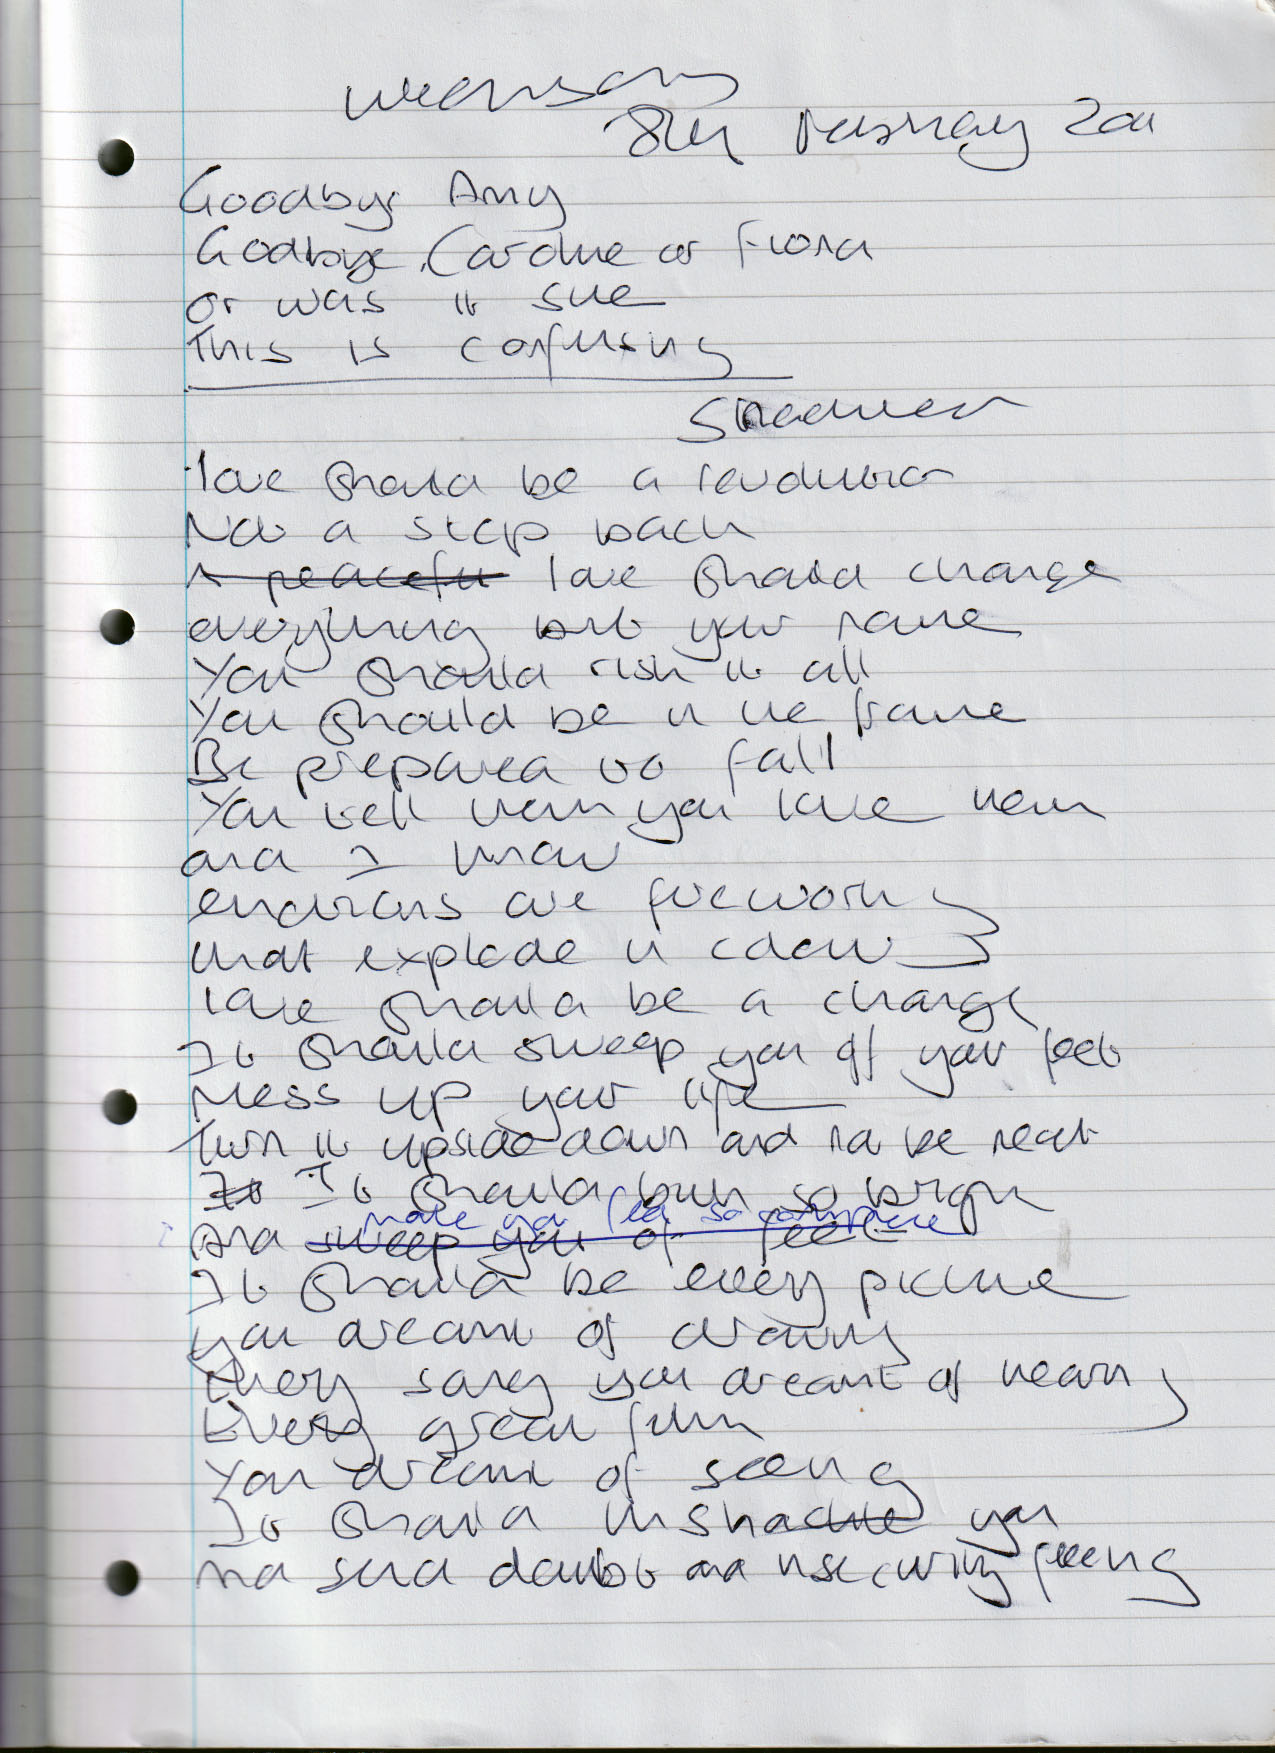 Wednesday
8th February 2011
Goodbye Amy
Goodbye Caroline or Fiona
Or was it Sue
This is confusing
love should be a revolution
Not a step back
A peaceful love should change
everything but your name
You should risk it all
You should be in the frame
Be prepared to fall
You tell them you love them
and I know
emotions are fireworks
that explode in colour
love should be a change
It should sweep you off your feet
Mess up your life
Turn it upside down and not be neat
It It should burn so bright
make you feel so complete
And sweep you of feet
It should be every picture
you dreamt of drawing
Every song you dreamt of hearing
Every great film
You dreamt of seeing
It should unshackle you
and send doubt and insecurity fleeing